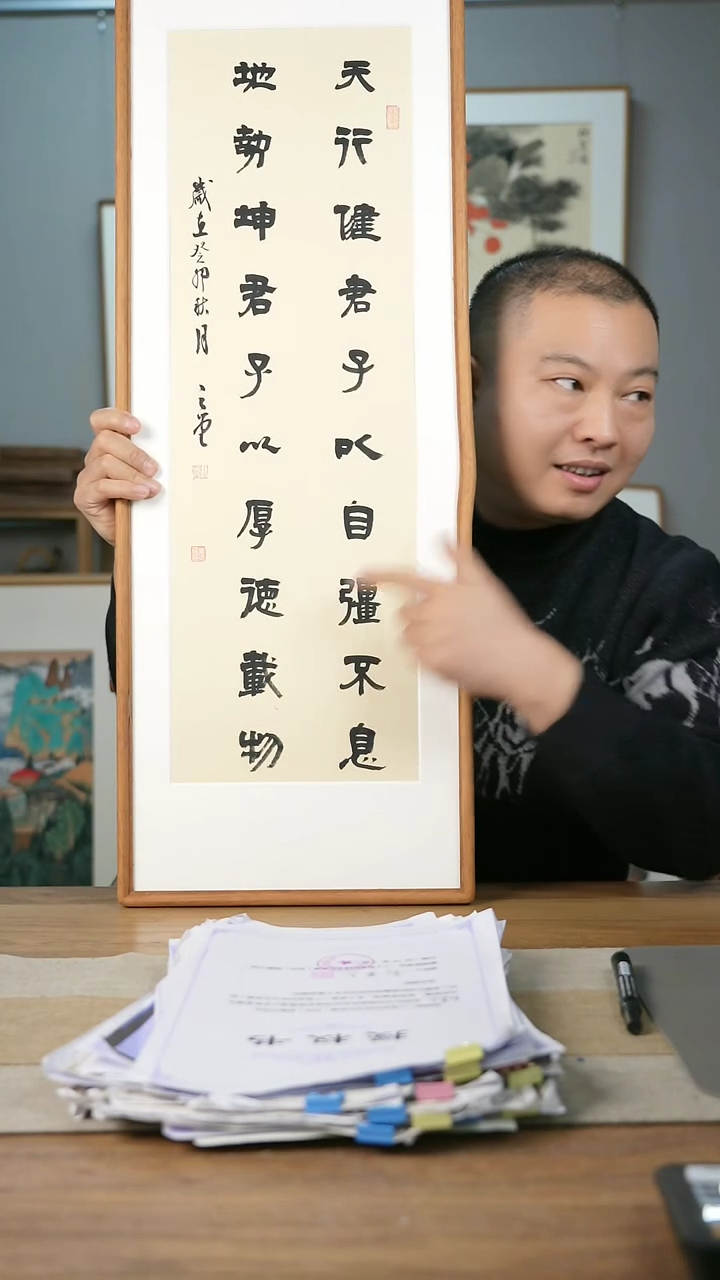 天行健君子以自彊不息
地勢坤君子以厚德載物
歲在癸卯秋月
授权书